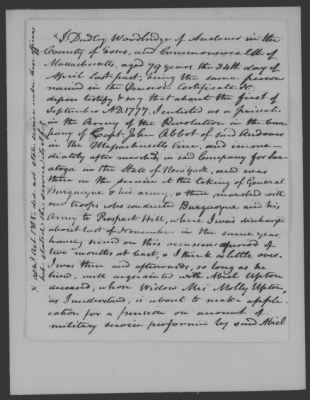 "I, Dudley Woodbridge of Andover in the
County of Essex, and Commonwealth of
Massachusetts, aged 79 years the 24th day of
April last past, being the same person
named in the Pension Certificate &c.
depose testify & say that about the first of
September A.D. 1777. I enlisted as a private
in the Army of the Revolution in the Com-
pany of Capt. John Abbot of said Andover
in the Massachusetts line, and imme-
diately after marched in said Company for Sar-
atoga in the State of New york, and was
there in the service at the taking of General
Burguoyne & his army, & then marched with
our troops who conducted Burguoyne and his
Army to Prospect Hill, where I was discharged
about last of November in the same year
having served on this occasion a period of
two months at least, & I think a little over.
I was then and afterwards, so long as he
lived, well acquainted with Abiel Upton
deceased, whose Widow Mrs Molly Upton,
as I understand, is about to make appli-
cation for a pension on account of
military service performed by said Abiel